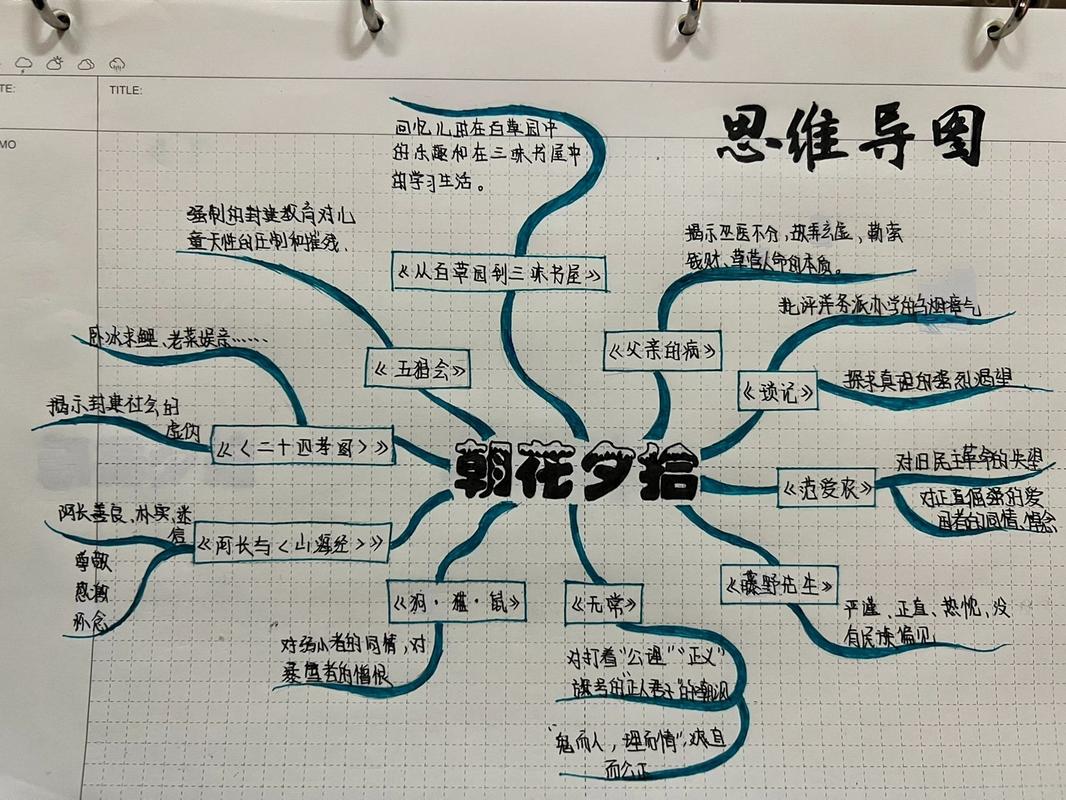 TE:
TITLE:
MO
思维导图
回忆儿时在百草园中
的乐趣和在三味书屋中
的学习生活。
《从百草园到三味书屋》
强制的封建教育对儿
童天性的压制和摧残.
《五猖会》
揭示巫医不分,故弄玄虚,勒索
钱财、草菅人命的本质。
《父亲的病》
批评洋务派办学的乌烟瘴气
《琐记》
探求真理的强烈渴望
卧冰求鲤、老莱娱亲……
揭示封建社会的
虚伪
《〈二十四孝图〉》
朝花夕拾
对旧民主革命的失望
《范爱农》
对正直倔强的爱
国者的同情、悼念
阿长善良、朴实、迷
信
尊敬
感激
怀念
《阿长与〈山海经〉》
《狗·猫·鼠》
对弱小者的同情,对
暴虐者的憎恨
《无常》
对打着“公理”“正义”
旗号的“正人君子”的嘲讽
“鬼而人,理而情”,爽直
而公正
《藤野先生》
严谨、正直、热忱、没
有民族偏见